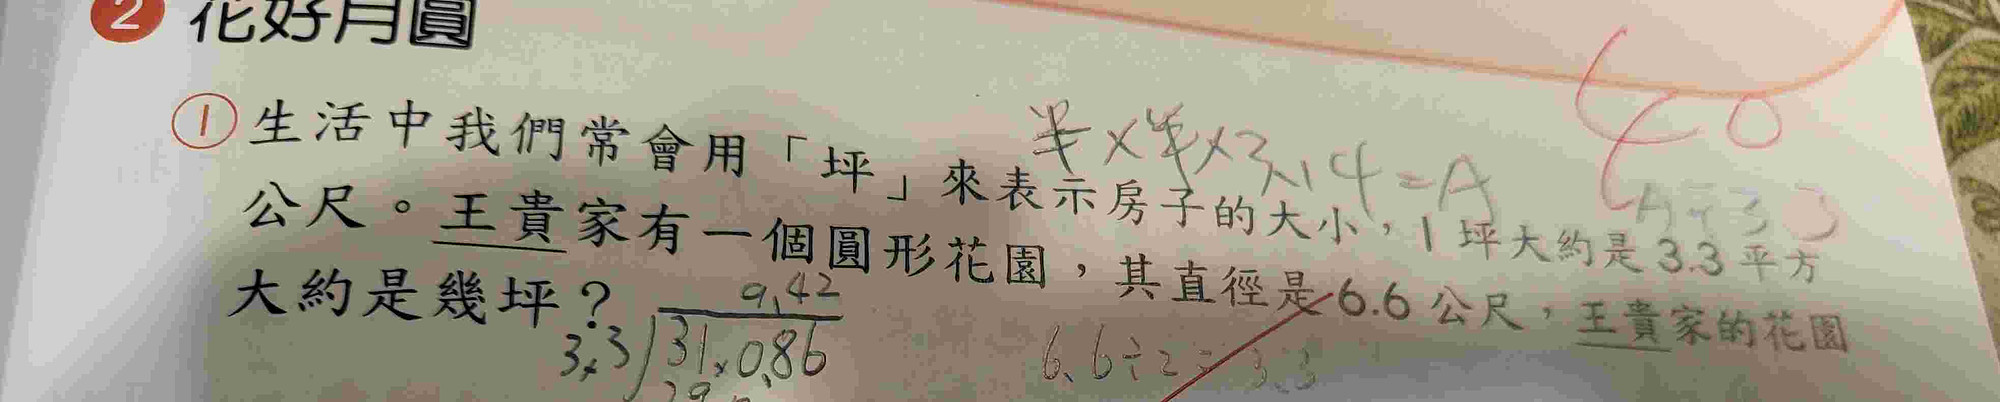 2 花好月圓
半×半×3.14=A
① 生活中我們常會用「坪」來表示房子的大小，1坪大約是3.3平方
公尺。王貴家有一個圓形花園，其直徑是6.6公尺，王貴家的花園
大約是幾坪？
A÷3.3
9.42
3.3 31.086
6.6÷2=3.3